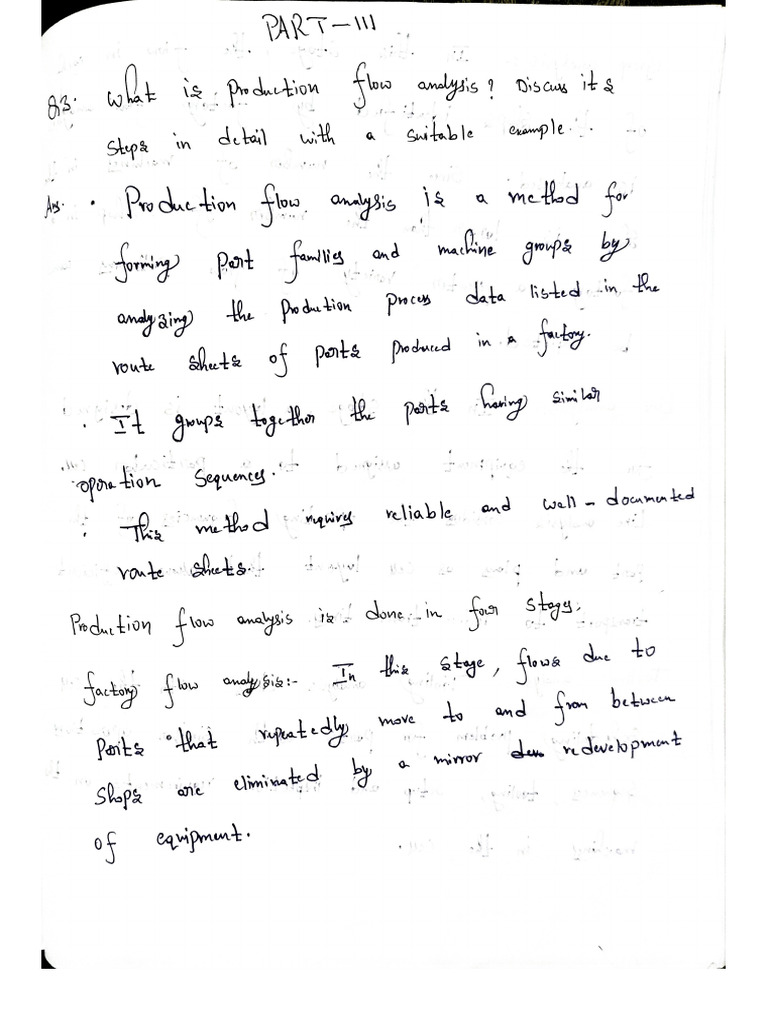 PART-III
Q3. What is production flow analysis? Discuss its
steps in detail with a suitable example.
Ans. • Production flow analysis is a method for
forming part families and machine groups by
analyzing the production process data listed in the
route sheets of parts produced in a factory.
• It groups together the parts having similar
operation sequences.
• This method requires reliable and well-documented
route sheets.
Production flow analysis is done in four stages.
factory flow analysis:- In this stage, flows due to
parts that repeatedly move to and from between
shops are eliminated by a mirror redevelopment
of equipment.